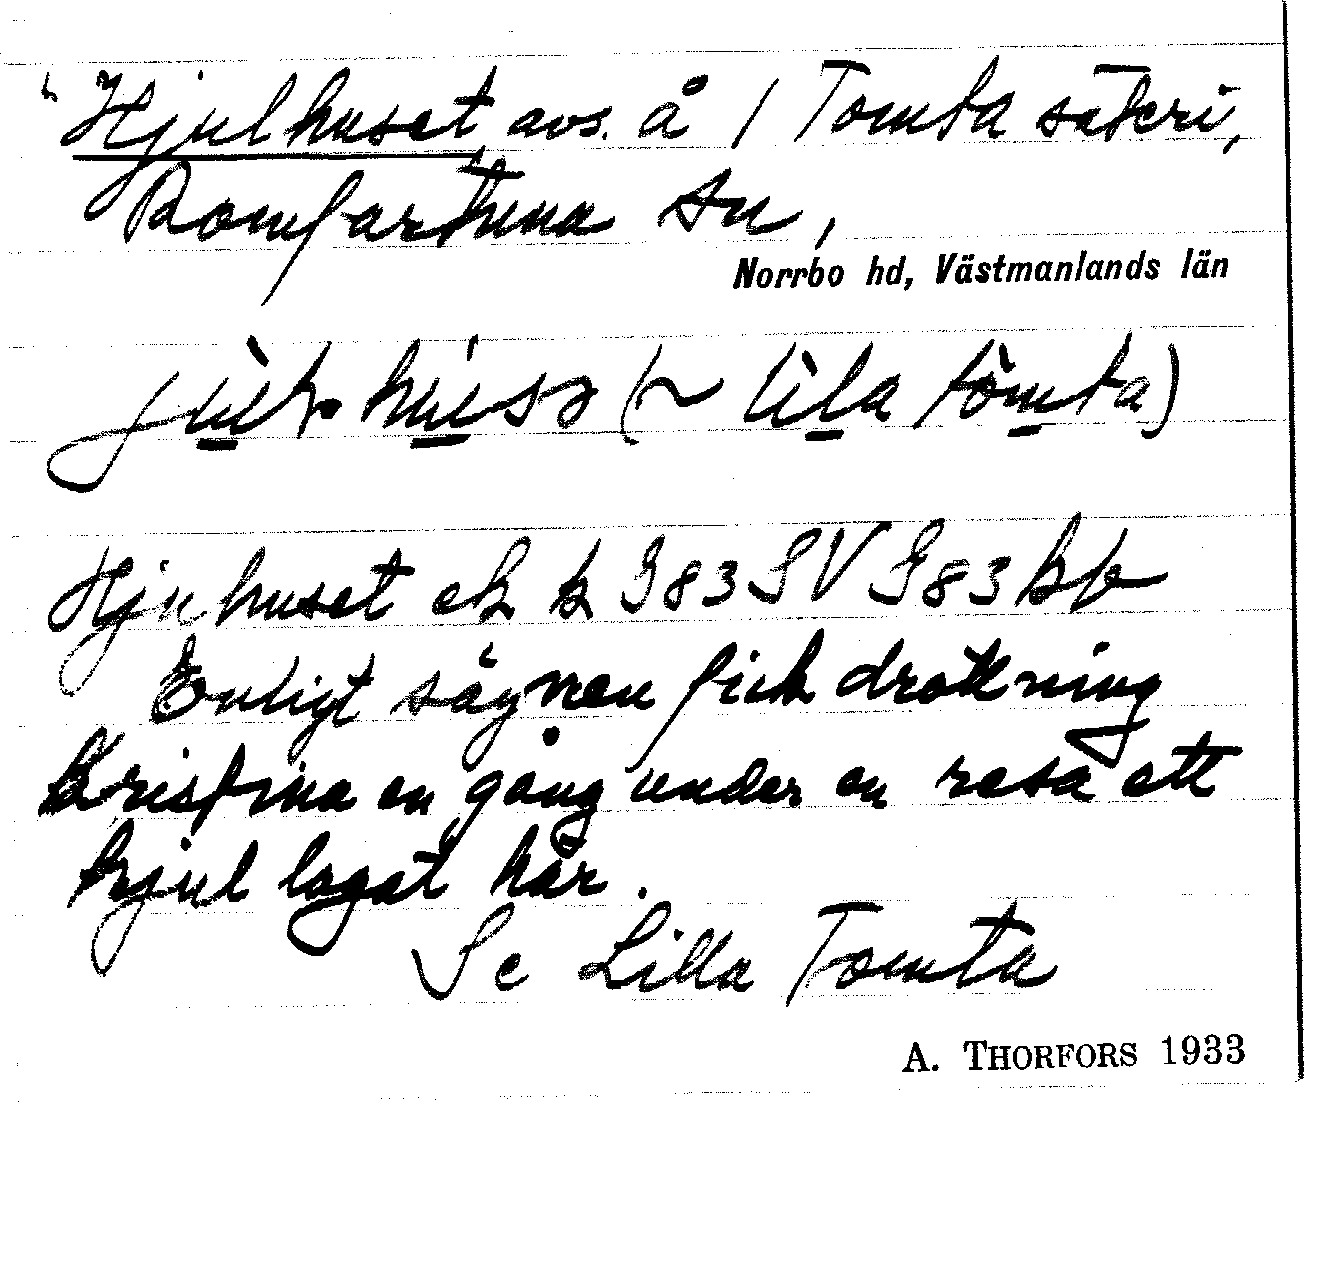 Hjulhuset avs. å 1 Tomta säteri,
Romfartuna sn,
Norrbo hd, Västmanlands län
(~ lìla tòmta)
Hjuhuset ek k G83SV G83
Enligt sägnen fick drottning
Kristina en gång under en resa ett
hjul lagat här.
Se Lilla Tomta
A. THORFORS 1933